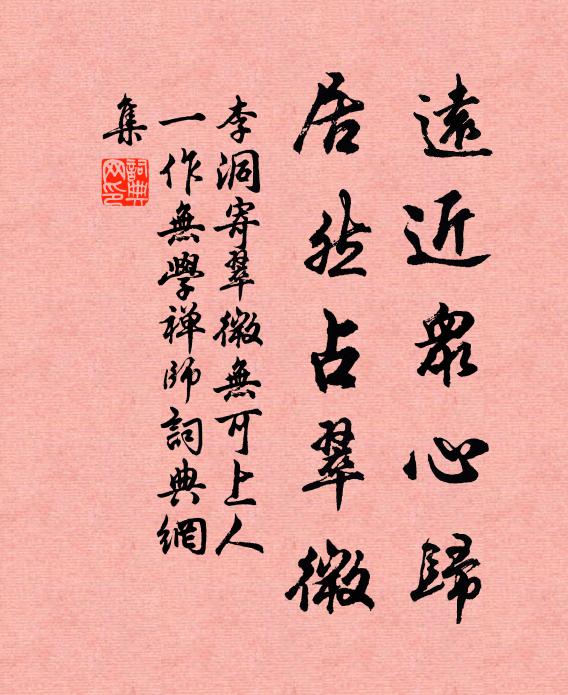 遠近衆心歸
居然占翠微
李洞寄翠微無可上人
一作無學禅師詞典網
集
詞典
网印